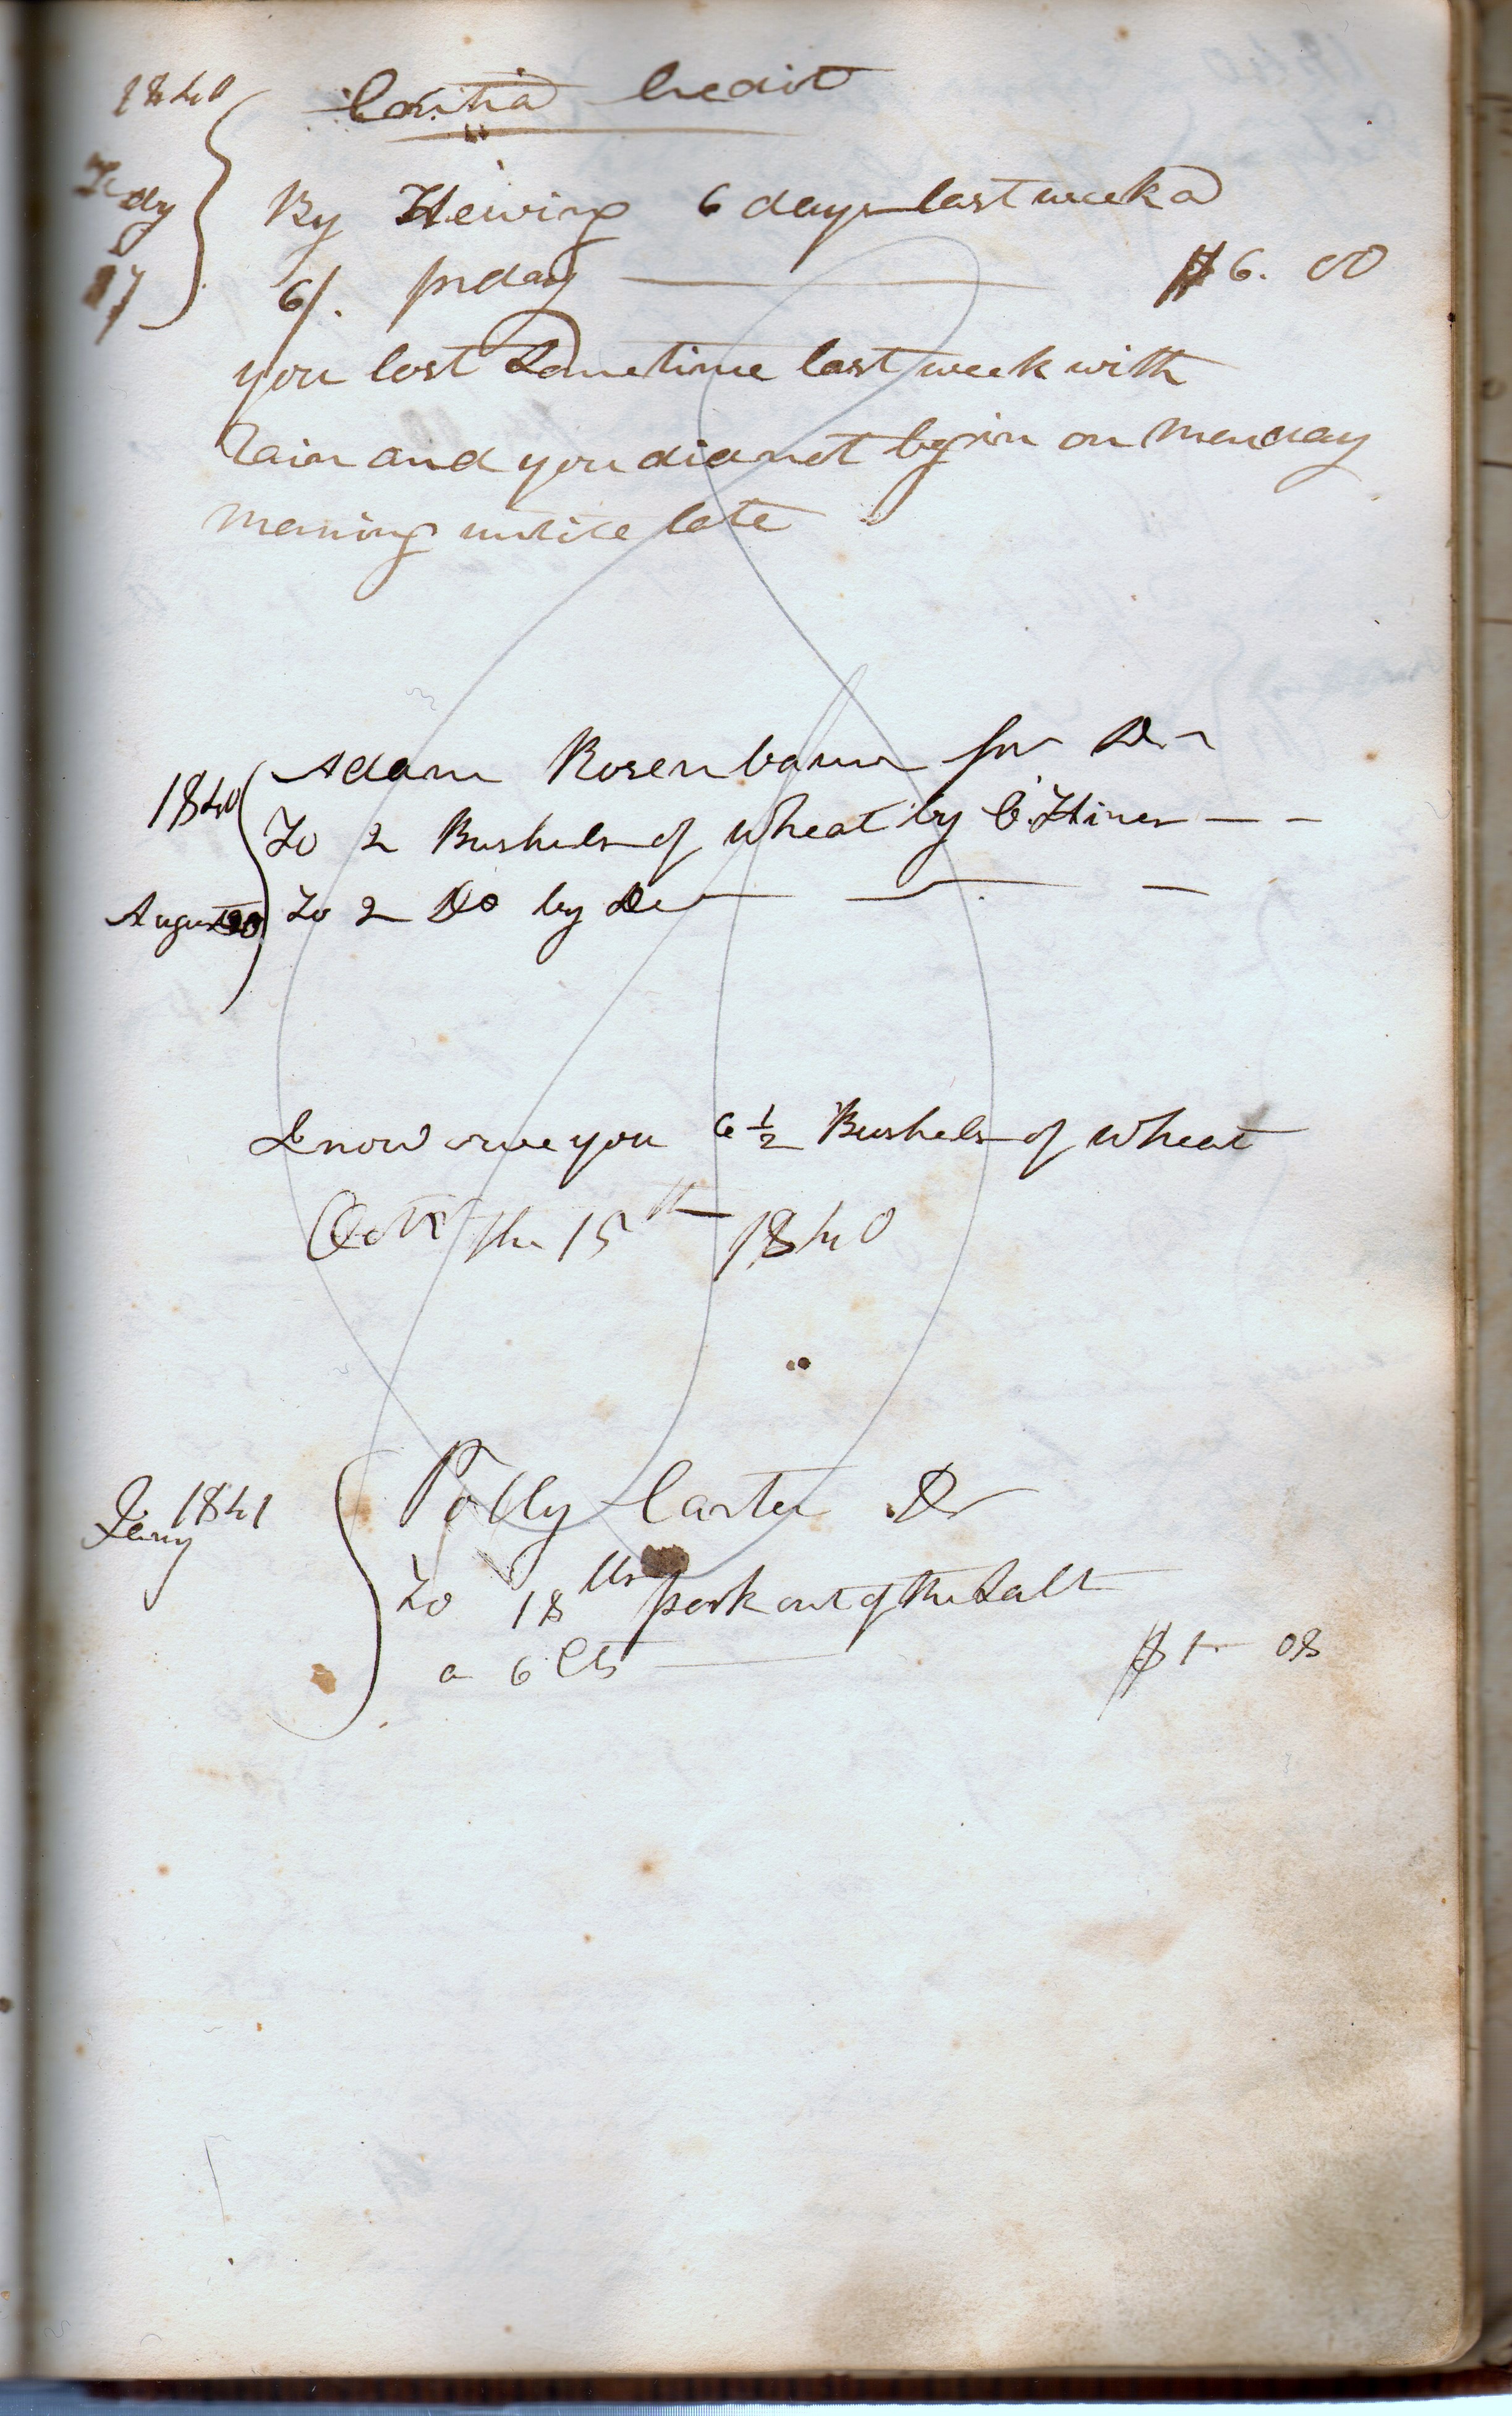 1840 Contra Credit
By Hewing 6 days last week a
17 6/. pr day $6. 00
you lost Sometime last week with
Rain and you did not begin on monday
morning untill late
Adam Rosenbaum jnr Dr
1840
To 2 Bushels of wheat by C. Hiner
August 20 To 2 Do by Do
I now owe you 6 1/2 Bushels of wheat
Octr the 15th 1840
Jany 1841 Polly Carter Dr
To 18 lbs pork out of the Salt
a 6 Cts $1 - 08